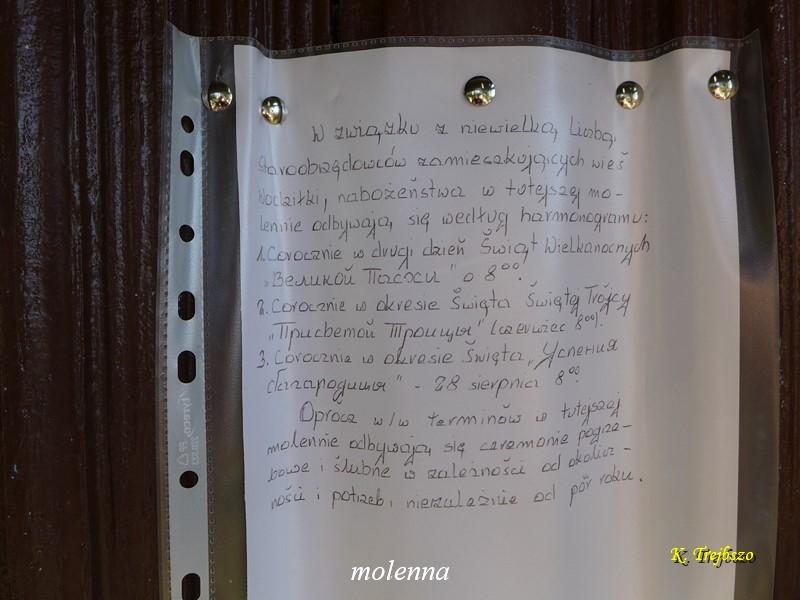 W związku z niewielką liczbą
staroobrzędowców zamieszkujących wieś
Wodziłki, nabożeństwa w tutejszej mo-
lennie odbywają się według harmonogramu:
1. Corocznie w drugi dzień Świąt Wielkanocnych
„Великой Пасхи" o 8⁰⁰.
2. Corocznie w okresie Święta Świętej Trójcy
„Присветой Троицы" (czerwiec 8⁰⁰).
3. Corocznie w okresie Święta „Успения
Багародицы" - 28 sierpnia 8⁰⁰
Oprócz w/w terminów w tutejszej
molennie odbywają się ceremonie pogrze-
bowe i ślubne w zależności od okolicz-
ności i potrzeb, niezależnie od pór roku.
molenna
K. Trejbszo